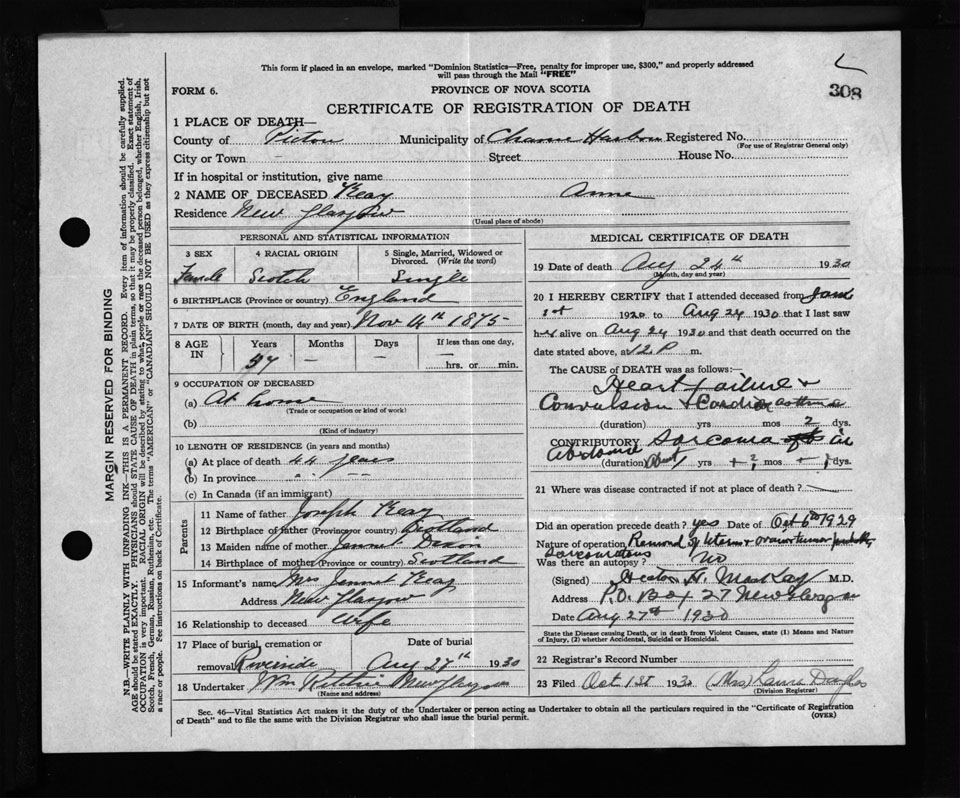 This form if placed in an envelope, marked "Dominion Statistics—Free, penalty for improper use, $300," and properly addressed
will pass through the Mail "FREE"
308
FORM 6.
PROVINCE OF NOVA SCOTIA
CERTIFICATE OF REGISTRATION OF DEATH
1 PLACE OF DEATH—
County of Pictou Municipality of Chance Harbour Registered No.
(For use of Registrar General only)
City or Town — Street House No.
If in hospital or institution, give name
2 NAME OF DECEASED Keay Anne
Residence New Glasgow
(Usual place of abode)
PERSONAL AND STATISTICAL INFORMATION
3 SEX 4 RACIAL ORIGIN 5 Single, Married, Widowed or Divorced. (Write the word)
Female Scotch Single
6 BIRTHPLACE (Province or country) England
7 DATE OF BIRTH (month, day and year) Nov 4th 1875
8 AGE IN Years Months Days If less than one day,
— — hrs. or min.
9 OCCUPATION OF DECEASED
(a) At home
(Trade or occupation or kind of work)
(b)
(Kind of industry)
10 LENGTH OF RESIDENCE (in years and months)
(a) At place of death 44 years
(b) In province " " " "
(c) In Canada (if an immigrant)
Parents
11 Name of father Joseph Keay
12 Birthplace of father (Province or country) Scotland
13 Maiden name of mother Jennet Dixon
14 Birthplace of mother (Province or country) Scotland
15 Informant's name Mrs Jennet Keay
Address New Glasgow
16 Relationship to deceased Wife
17 Place of burial, cremation or Date of burial
removal Riverside Aug 27th 1930
18 Undertaker Wm Ritchie New Glasgow
(Name and address)
MEDICAL CERTIFICATE OF DEATH
19 Date of death Aug 24th 1930
(Month, day and year)
20 I HEREBY CERTIFY that I attended deceased from
1st 1920 to Aug 24 1930 that I last saw
her alive on Aug 24 1930 and that death occurred on
date stated above, at 12 P m.
The CAUSE OF DEATH was as follows:—
Heart failure +
Convulsion + Cardiac asthma
(duration) yrs mos 2 dys.
CONTRIBUTORY Sarcoma in
abdomen
(duration) about 1 yrs + ? mos + ? dys.
21 Where was disease contracted if not at place of death?
Did an operation precede death? yes Date of Oct 6th 1929
Nature of operation Removal of uterus + ovarian tumor probably
sarcomatous
Was there an autopsy? No
(Signed) H. MacKay M.D.
Address P.O. Box 27 New Glasgow
Date Aug 27th 1930
State the Disease causing Death, or in death from Violent Causes, state (1) Means and Nature
of Injury, (2) whether Accidental, Suicidal or Homicidal.
22 Registrar's Record Number
23 Filed Oct 1st 1930 (Mrs) Laura Douglas
(Division Registrar)
Sec. 46—Vital Statistics Act makes it the duty of the Undertaker or person acting as Undertaker to obtain all the particulars required in the "Certificate of Registration
of Death" and to file the same with the Division Registrar who shall issue the burial permit.
(OVER)
MARGIN RESERVED FOR BINDING
N.B.—WRITE PLAINLY WITH UNFADING INK—THIS IS A PERMANENT RECORD. Every item of information should be carefully supplied.
AGE should be stated EXACTLY. PHYSICIANS should STATE CAUSE OF DEATH in plain terms, so that it may be properly classified. Exact statement of
OCCUPATION is very important. RACIAL ORIGIN will be described by stating to what people or race the deceased person belonged, whether English, Irish,
Scotch, French, German, Russian, Ruthenian, etc. The terms "AMERICAN" or "CANADIAN" SHOULD NOT BE USED as they express citizenship but not
a race or people. See instructions on back of Certificate.